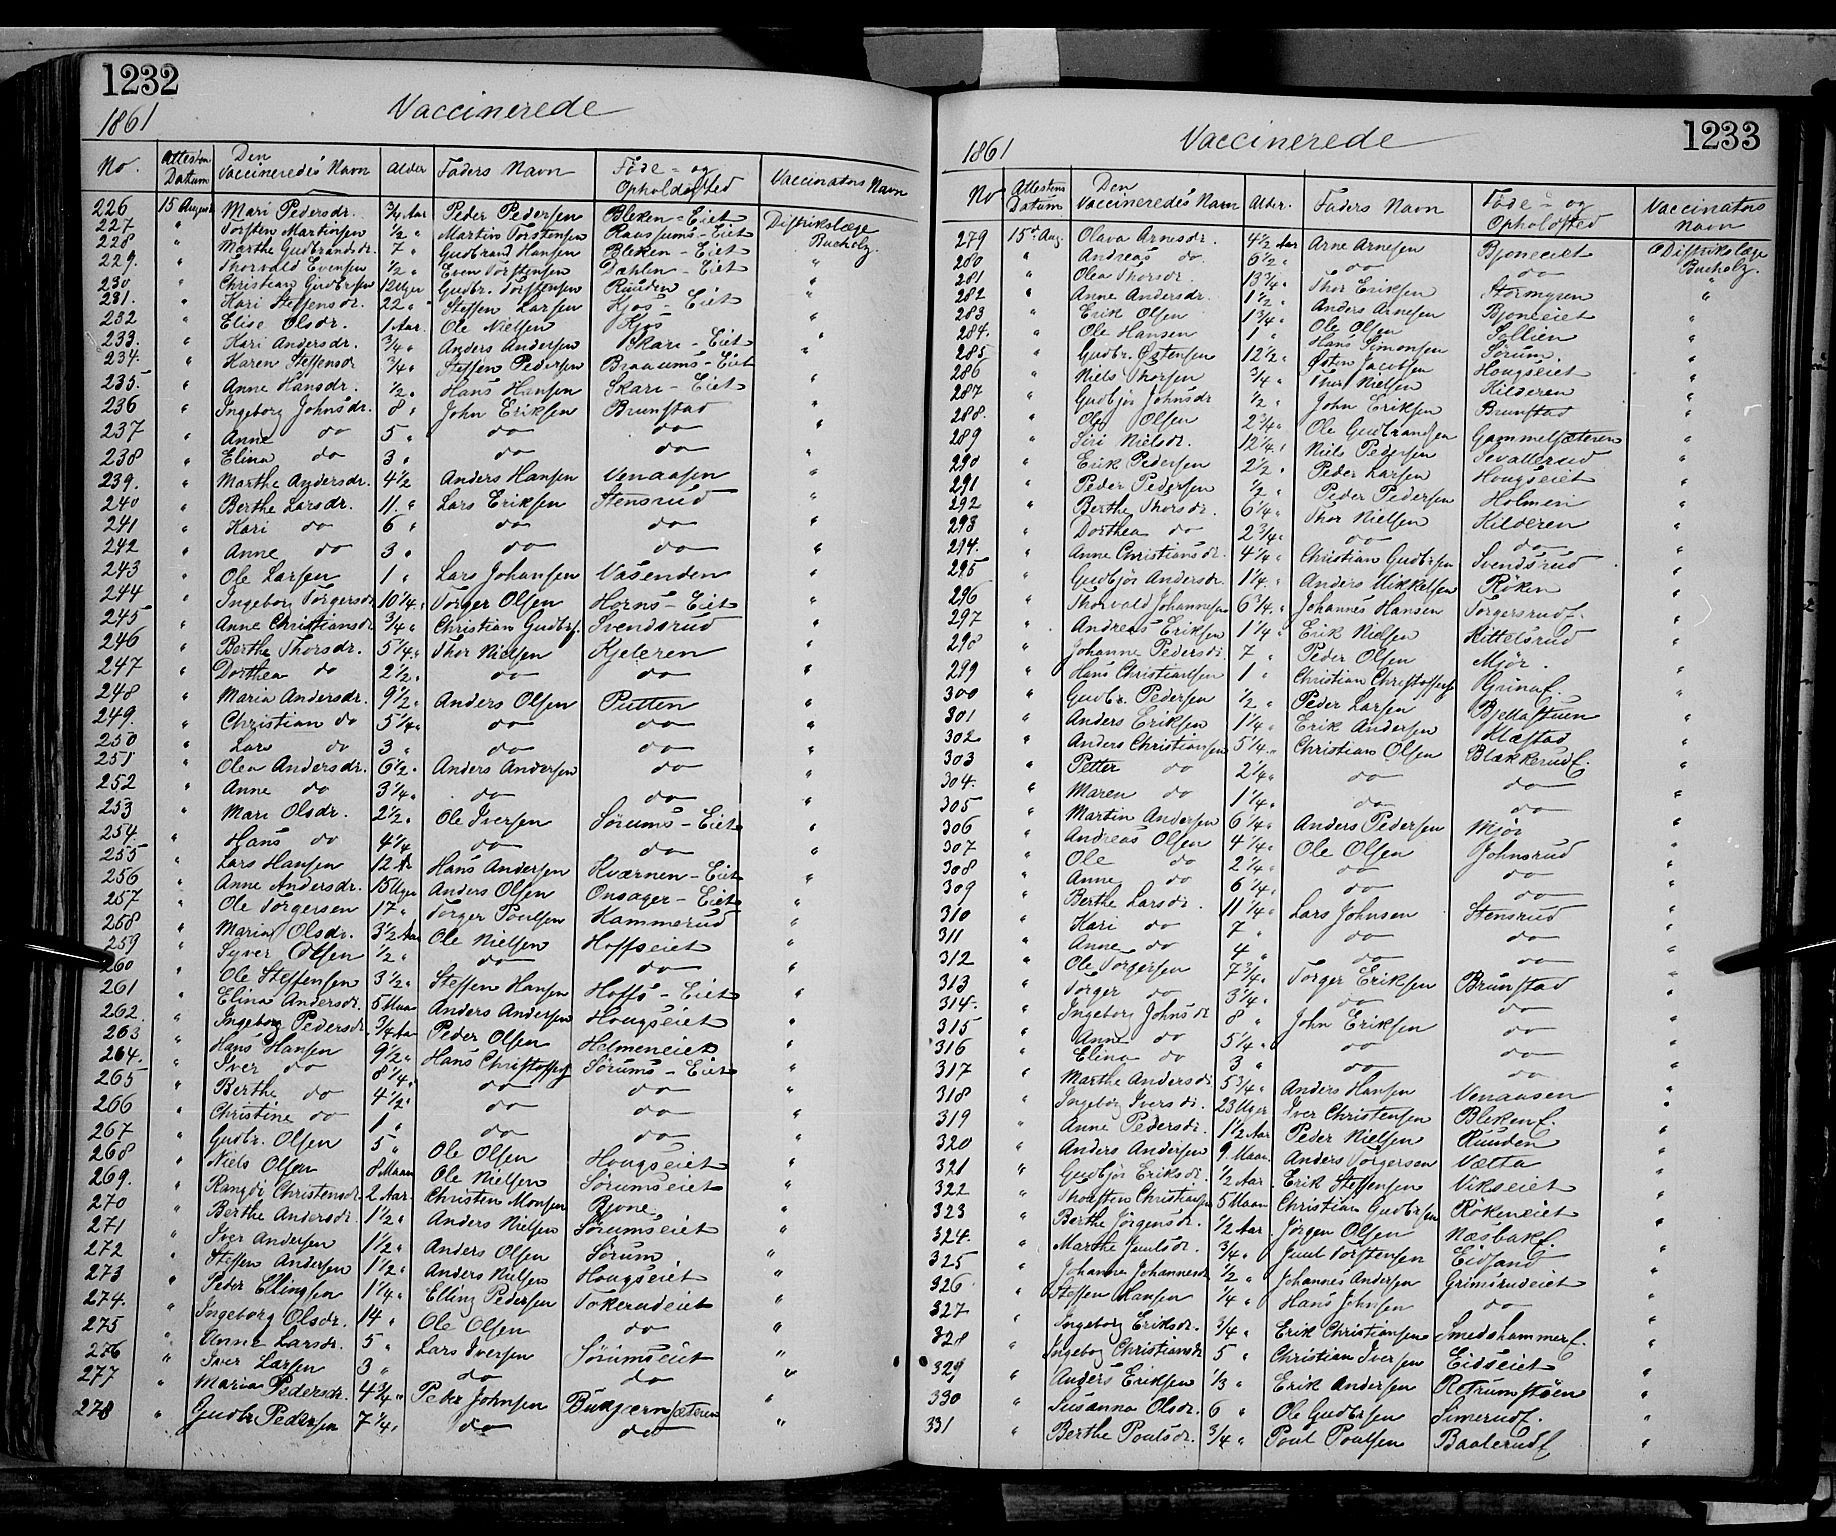 1232
1861 Vaccinerede
No. Attesten Datum Den Vaccineredes Navn Alder Faders Navn Føde- og Opholdssted Vaccinators Navn
226 15 August Mari Pedersdr. 3/4 Aar Peder Pedersen Bleken-Eiet Distriktslæge Bucholz.
227 " Torsten Martinsen 1/2 " Martin Torstensen Raassums-Eiet
228 " Marthe Gudbrandsdr. 7 " Gudbrand Hansen Bleken-Eiet "
229. " Thorvald Evensen 1/2 " Even Torstensen Dæhlin-Eiet "
230 " Christian Gudbrsen 12 Uger Gudbr. Torstensen Ruuden "
231. " Kari Steffensdr. 22 " Steffen Larsen Kjos-Eiet "
232 " Elise Olsdr. 1 Aar. Ole Nielsen Kjos "
233. " Kari Andersdr. 3/4 " Anders Andersen Skari-Eiet "
234. " Karen Steffensdr 3/4 " Steffen Pedersen Braaums-Eiet "
235. " Anne Hansdr. 1/2 " Hans Hansen Skari-Eiet "
236 " Ingeborg Johnsdr. 8 " John Eriksen Brunstad "
237 " Anne do 5 " do do "
238 " Elina do 3 " do do "
239. " Marthe Andersdr. 4 1/2 Anders Hansen Venaasen "
240 " Berthe Larsdr. 11. " Lars Eriksen Stensrud "
241 " Kari do 6 " do do "
242 " Anne do 3 " do do "
243 " Ole Larsen 1 " Lars Johansen Vasenden "
244 " Ingeborg Torgersdr 10 1/4 " Torger Olsen Horns-Eiet "
245 " Anne Christiansdr 3/4 " Christian Gudbrs. Svendsrud "
246 " Berthe Thorsdr. 5 1/4 " Thor Nielsen Kjeleren "
247 " Dorthea do 2 1/2 " do do "
248 " Maria Andersdr. 9 1/2 " Anders Olsen Putten "
249. " Christian do 5 1/4 " do do "
250 " Lars do 3 " do do "
251 " Olea Andersdr. 6 1/2 " Anders Andersen do "
252 " Anne do 3 1/4 " do do "
253 " Mari Olsdr. 2 1/2 " Ole Iversen Sørums-Eiet "
254. " Hans do 4 1/4 do do "
255 " Lars Hansen 12 Aar Hans Andersen Kværnen-Eiet "
256 " Anne Andersdr. 15 Uger Anders Olsen Onsager-Eiet "
257 " Ole Torgersen 17 " Torger Poulsen Kammerud "
258 " Maria Olsdr. 3 1/2 Aar Ole Nielsen Hoffseiet "
259 " Syver Olsen 1/2 " do do "
260 " Ole Steffensen 3 1/2 " Steffen Hansen Hoffs-Eiet "
261 " Elina Andersdr. 5 Maan Anders Andersen Hougseiet "
262. " Ingeborg Pedersdr. 3/4 Aar Peder Olsen Helmeneiet "
263 " Hans Hansen 9 1/2 " Hans Christoffers. Sørums-Eiet "
264. " Iver do 8 1/4 " do do "
265 " Berthe do 4 1/2 " do do "
266 " Christine do 1 " do do "
267 " Gudbr. Olsen 5 " Ole Olsen Hougseiet "
268 " Niels Olsen 8 Maan Ole Nielsen Sørumseiet "
269. " Rangdi Christensdr. 2 Aar. Christen Monsen Bjone "
270 " Berthe Andersdr. 1 1/2 " Anders Nielsen Sørumseiet "
271 " Iver Andersen 1 1/2 " Anders Olsen Sørum "
272 " Steffen Andersen 1 1/2 " Anders Nielsen Hougseiet "
273 " Peder Ellingsen 1 1/4 " Elling Pedersen Tokerudeiet "
274. " Ingeborg Olsdr. 14 " Ole Olsen do "
275 " Anne Larsdr. 5 " Lars Iversen Sørumseiet "
276 " Iver Larsen 3 " do do "
277 " Maria Pedersdr. 4 3/4 " Peder Johnsen "
278 " Gudbr. Pedersen 7 1/4 " do do "
1233
1861 Vaccinerede
No Attestens Datum Den Vaccineredes Navn Alder. Faders Navn Føde- og Opholdssted Vaccinators Navn
279 15de Aug. Olava Arnesdr. 4 1/2 Aar Arne Arnesen Bjoneeiet Distriktslæge Bucholz.
280 " Andreas do 6 1/2 " do do
281 " Olea Thorsdr. 13 3/4 " Thor Eriksen Stormyren "
282 " Anne Andersdr. 1 1/2 " Anders Arnesen Bjoneiet "
283 " Erik Olsen 1 3/4 " Ole Olsen Sollien
284. " Ole Hansen 1 " Hans Simonsen Sørum. "
285. " Gudbr. Østensen 12 1/2 " Østen Jacobsen Hougseiet "
286 " Niels Thorsen 3/4 " Thor Nielsen Kilderen "
287 " Gudbjør Johnsdr 1/2 " John Eriksen Brunstad "
288. " Ole Olsen 2 3/4 " Ole Gudbrandsen Gammelsæteren "
289 " Siri Nielsdr. 12 1/4 " Niels Pedersen Sevallerud "
290 " Erik Pedersen 2 1/2 " Peder Larsen Hougseiet "
291 " Peder Pedersen 1/2 " Peder Pedersen Holmen "
292 " Berthe Thorsdr. 6 1/4 " Thor Nielsen Kilderen "
293 " Dorthea do 2 3/4 " do do "
294. " Anne Christiansdr. 4 1/4 " Christian Gudbrsen Svendsrud "
295 " Gudbjør Andersdr. 1 1/4 " Anders Mikkelsen Røken "
296 " Thorvald Johannesen 6 3/4 " Johannes Hansen Torgersrud. "
297 " Andreas Eriksen 1 1/4 " Erik Nielsen Kittelsrud "
298 " Johanne Pedersdr. 7 " Peder Olsen Mjør. "
299 " Hans Christiansen 1 " Christian Christoffers Grinaf. "
300 " Gudbr. Pedersen 1/2 " Peder Larsen Bjellastuen "
301 " Anders Eriksen 1 1/4 " Erik Andersen Klæstad "
302 " Anders Christiansen 5 1/4 " Christian Olsen Blækkerudf. "
303 " Petter do 2 1/4 " do do "
304. " Maren do 1 1/4 " do do "
305 " Martin Andersen 6 1/4 " Anders Pedersen Mjør "
306 " Andreas Olsen 4 1/4 " Ole Olsen Johnsrud "
307 " Ole do 2 1/4 " do do "
308 " Anne do 6 1/4 " do do "
309 " Berthe Larsdr. 11 1/4 " Lars Johnsen Stensrud "
310 " Kari do 7 " do do "
311 " Anne do 4 " do do "
312 " Ole Torgersen 7 3/4 " Torger Eriksen Brunstad "
313 " Torger do 3 1/4 " do do "
314. " Ingeborg Johnsdr 8 " John Eriksen do "
315 " Anne do 5 1/4 " do do "
316 " Elina do 3 " do do "
317 " Marthe Andersdr. 5 3/4 " Anders Hansen Venaasen "
318 " Ingeborg Iversdr. 23 Uger Iver Christensen Blekenf. "
319 " Anne Pedersdr. 1 1/2 Aar Peder Nielsen Ruuden "
320 " Anders Andersen 9. Maan. Anders Torgersen Vætta "
321 " Gudbjør Eriksdr. 1/2 Aar. Erik Steffensen Vikseiet "
322 " Thorsten Christiansen 5 Maan Christian Gudbrsen Røkeneiet "
323 " Berthe Jørgensdr. 1/2 Aar. Jørgen Olsen Næsbakf. "
324. " Marthe Juulsdr. 3/4 " Juul Torstensen Eidsand "
325 " Johanne Johannesdr 1/2 " Johannes Andersen Grimsrudeiet "
326 " Steffen Hansen 1/4 " Hans Johnsen do "
327 " Ingeborg Eriksdr. 3/4 " Erik Christiansen Smedshammerf. "
328 " Ingebor Christiansdr 5 " Christian Iversen Eidseiet "
329 " Anders Eriksen 1/3 " Erik Andersen Retrumstøen "
330 " Susanna Olsdr. 6 " Ole Gudbrsen Simerudf. "
331 " Berthe Poulsdr. 3/4 " Poul Poulsen Baalerudf. "